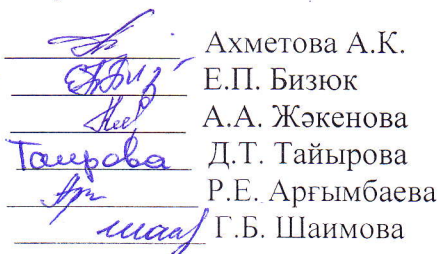 Ахметова А.К.
Е.П. Бизюк
А.А. Жәкенова
Таирова Д.Т. Тайырова
Р.Е. Арғымбаева
Г.Б. Шаимова